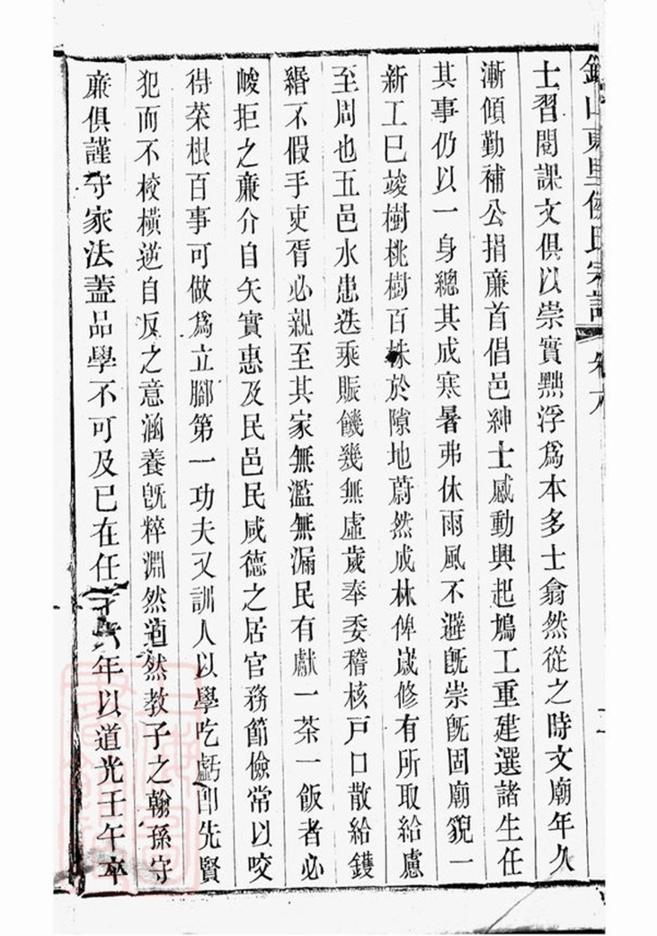 錫山東里侯氏宗譜 卷八
士習閱課文俱以崇實黜浮爲本多士翕然從之時文廟年久
漸傾勤補公捐廉首倡邑紳士感動興起鳩工重建選諸生任
其事仍以一身總其成寒暑弗休雨風不避旣崇旣固廟貌一
新工巳竣樹桃樹百株於隙地蔚然成林俾歲修有所取給慮
至周也五邑水患迭乘賑饑幾無虛歲奉委稽核戸口散給鏹
緡不假手吏胥必親至其家無濫無漏民有獻一茶一飯者必
峻拒之廉介自矢實惠及民邑民咸德之居官務節儉常以咬
得菜根百事可做爲立腳第一功夫又訓人以學吃虧卽先賢
犯而不校橫逆自反之意涵養旣粹淵然適然教子之翰孫守
廉俱謹守家法蓋品學不可及已在任六年以道光壬午卒